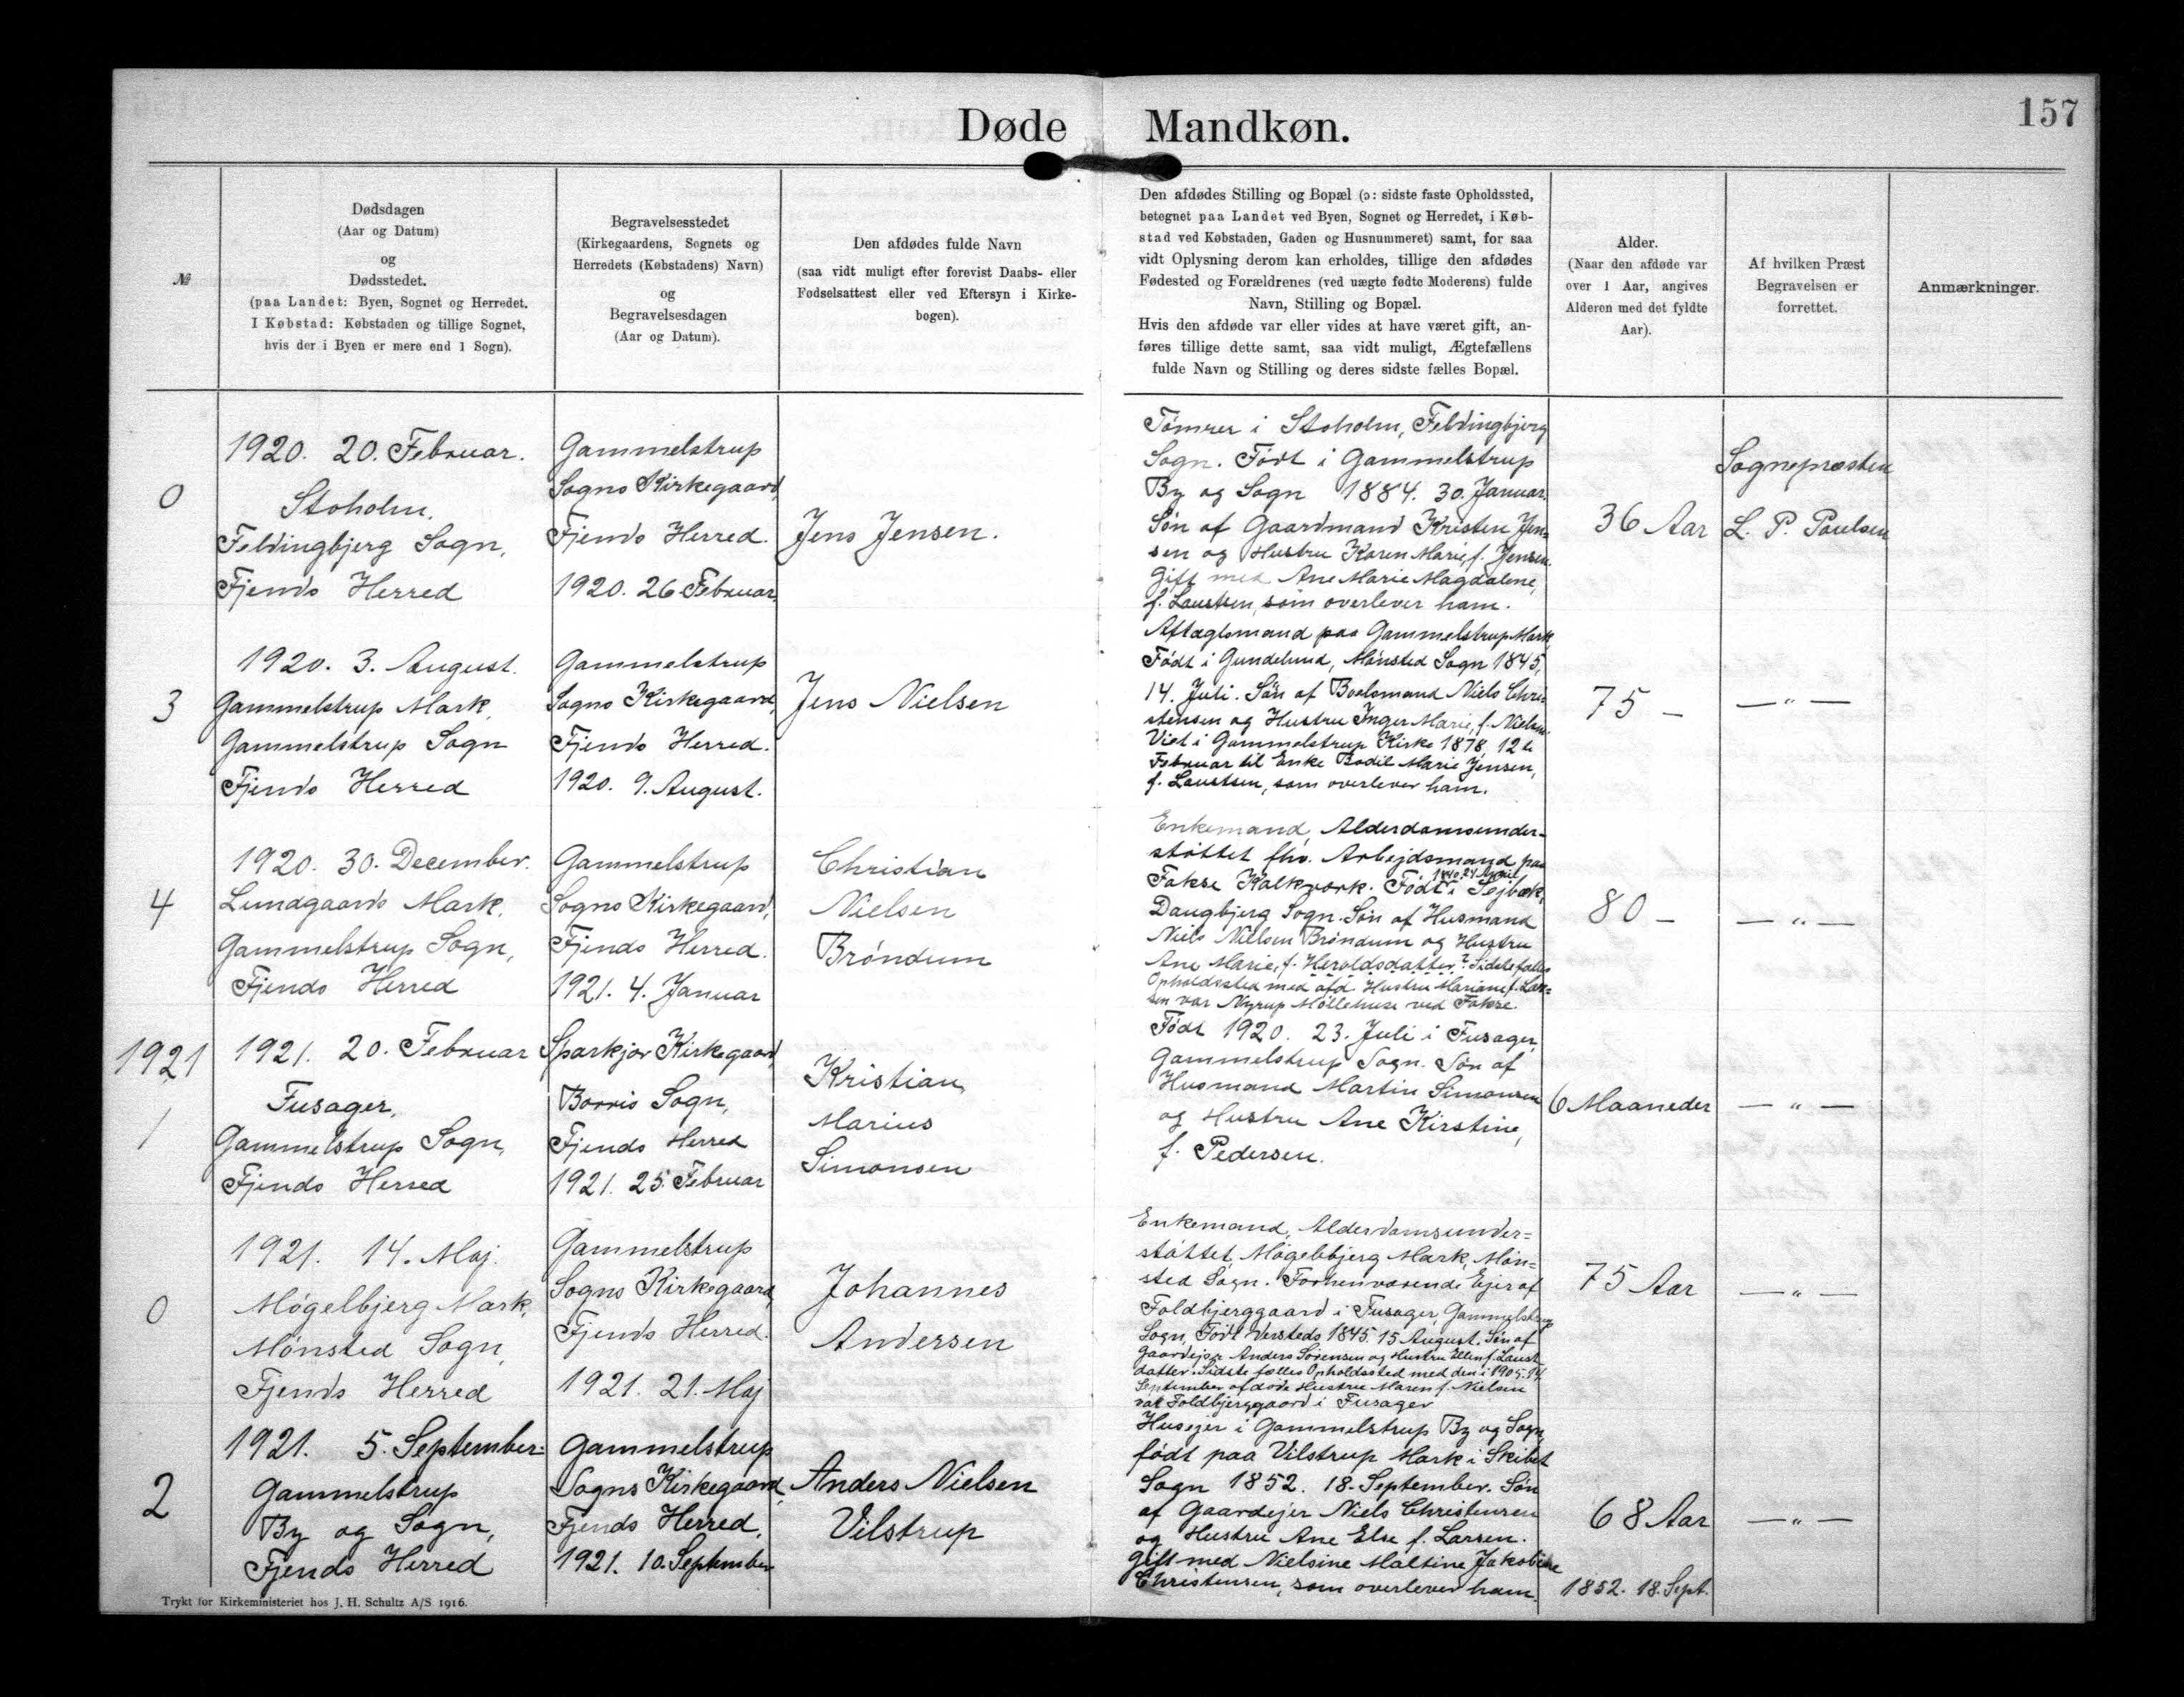 157
Døde Mandkøn.
№
Dødsdagen
(Aar og Datum)
og
Dødsstedet.
(paa Landet: Byen, Sognet og Herredet.
I Købstad: Købstaden og tillige Sognet,
hvis der i Byen er mere end 1 Sogn).
Begravelsesstedet
(Kirkegaardens, Sognets og
Herredets (Købstadens) Navn)
og
Begravelsesdagen
(Aar og Datum).
Den afdødes fulde Navn
(saa vidt muligt efter forevist Daabs- eller
Fødselsattest eller ved Eftersyn i Kirke-
bogen).
Den afdødes Stilling og Bopæl (ɔ: sidste faste Opholdssted,
betegnet paa Landet ved Byen, Sognet og Herredet, i Køb-
stad ved Købstaden, Gaden og Husnummeret) samt, for saa
vidt Oplysning derom kan erholdes, tillige den afdødes
Fødested og Forældrenes (ved uægte fødte Moderens) fulde
Navn, Stilling og Bopæl.
Hvis den afdøde var eller vides at have været gift, an-
føres tillige dette samt, saa vidt muligt, Ægtefællens
fulde Navn og Stilling og deres sidste fælles Bopæl.
Alder.
(Naar den afdøde var
over 1 Aar, angives
Alderen med det fyldte
Aar).
Af hvilken Præst
Begravelsen er
forrettet.
Anmærkninger.
0
1920. 20. Februar.
Stoholm,
Feldingbjerg Sogn,
Fjends Herred
Gammelstrup
Sogns Kirkegaard,
Fjends Herred.
1920. 26 Februar.
Jens Jensen.
Tømrer i Stoholm, Feldingbjerg
Sogn. Født i Gammelstrup
By og Sogn 1884. 30. Januar.
Søn af Gaardmand Kristen Jen-
sen og Hustru Karen Marie, f. Jensen.
Gift med Ane Marie Magdalene,
f. Laustsen, som overlever ham.
36 Aar
Sognepræsten
L. P. Poulsen
3
1920. 3. August.
Gammelstrup Mark,
Gammelstrup Sogn
Fjends Herred
Gammelstrup
Sogns Kirkegaard,
Fjends Herred.
1920. 9. August.
Jens Nielsen
Aftægtsmand paa Gammelstrup Mark,
Født i Gundelund, Mønsted Sogn 1845,
14. Juli. Søn af Boelsmand Niels Chri-
stensen og Hustru Inger Marie, f. Nielsen.
Viet i Gammelstrup Kirke 1878, 12te
Februar til Enke Bodil Marie Jensen,
f. Laustsen, som overlever ham.
75 —
— " —
4
1920. 30. December.
Lundgaards Mark,
Gammelstrup Sogn,
Fjends Herred
Gammelstrup
Sogns Kirkegaard,
Fjends Herred.
1921. 4. Januar
Christian
Nielsen
Brøndum
Enkemand, Alderdomsunder-
støttet fhv. Arbejdsmand paa
Fakse Kalkværk. Født i Sejbæk,
Daugbjerg Sogn. Søn af Husmand
Niels Nielsen Brøndum og Hustru
Ane Marie, f. Heroldsdatter? Sidste fælles
Opholdssted med afd. Hustru Mariane f. Lar-
sen var Nyrup Møllehuse ved Fakse.
80 —
— " —
1921
1
1921. 20. Februar
Fusager,
Gammelstrup Sogn,
Fjends Herred
Sparkjær Kirkegaard,
Borris Sogn,
Fjends Herred
1921. 25. Februar
Kristian
Marius
Simonsen
Født 1920. 23. Juli i Fusager,
Gammelstrup Sogn. Søn af
Husmand Martin Simonsen
og Hustru Ane Kirstine,
f. Pedersen.
6 Maaneder
— " —
0
1921. 14. Maj.
Møgelbjerg Mark,
Mønsted Sogn,
Fjends Herred
Gammelstrup
Sogns Kirkegaard,
Fjends Herred.
1921. 21. Maj
Johannes
Andersen
Enkemand, Alderdomsunder-
støttet, Møgelbjerg Mark, Møn-
sted Sogn. Forhenværende Ejer af
Foldbjerggaard i Fusager, Gammelstrup
Sogn, Født dersteds 1845. 15 August. Søn af
Gaardejer Anders Sørensen og Hustru Ellen f. Laust-
datter. Sidste fælles Opholdssted med den i 1905. 14
September afdøde Hustru Maren f. Nielsen
var Foldbjerggaard i Fusager
75 Aar
— " —
2
1921. 5. September.
Gammelstrup
By og Sogn,
Fjends Herred
Gammelstrup
Sogns Kirkegaard,
Fjends Herred,
1921. 10. September
Anders Nielsen
Vilstrup
Husejer i Gammelstrup By og Sogn,
født paa Vilstrup Mark i Skibet
Sogn 1852. 18. September. Søn
af Gaardejer Niels Christensen
og Hustru Ane Else f. Larsen.
Gift med Nielsine Maltine Jakobine
Christensen, som overlever ham.
68 Aar
1852. 18. Sept.
— " —
Trykt for Kirkeministeriet hos J. H. Schultz A/S 1916.